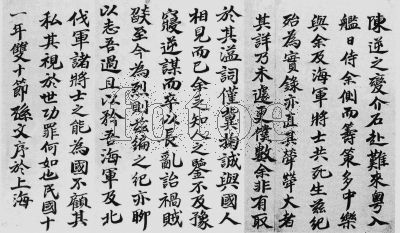 陳逆之變介石赴難來粵入
艦日侍余側而籌策多中樂
與余及海軍將士共死生茲紀
殆為實錄亦直其犖犖大者
其詳乃未遑更僕數余非有取
於其溢詞僅冀掬誠與國人
相見而已余之知人之鑒不及豫
寢逆謀而卒以長亂詒禍賊
燄至今為烈則茲編之紀亦聊
以志吾過且以矜吾海軍及北
伐軍諸將士之能為國不顧其
私其視於世功罪何如也民國十
一年雙十節孫文序於上海